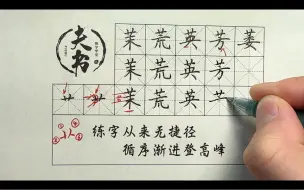 夫书
茉荒英芳萎
茉荒英芳
艹茉荒英艹
练字从来无捷径
循序渐进登高峰